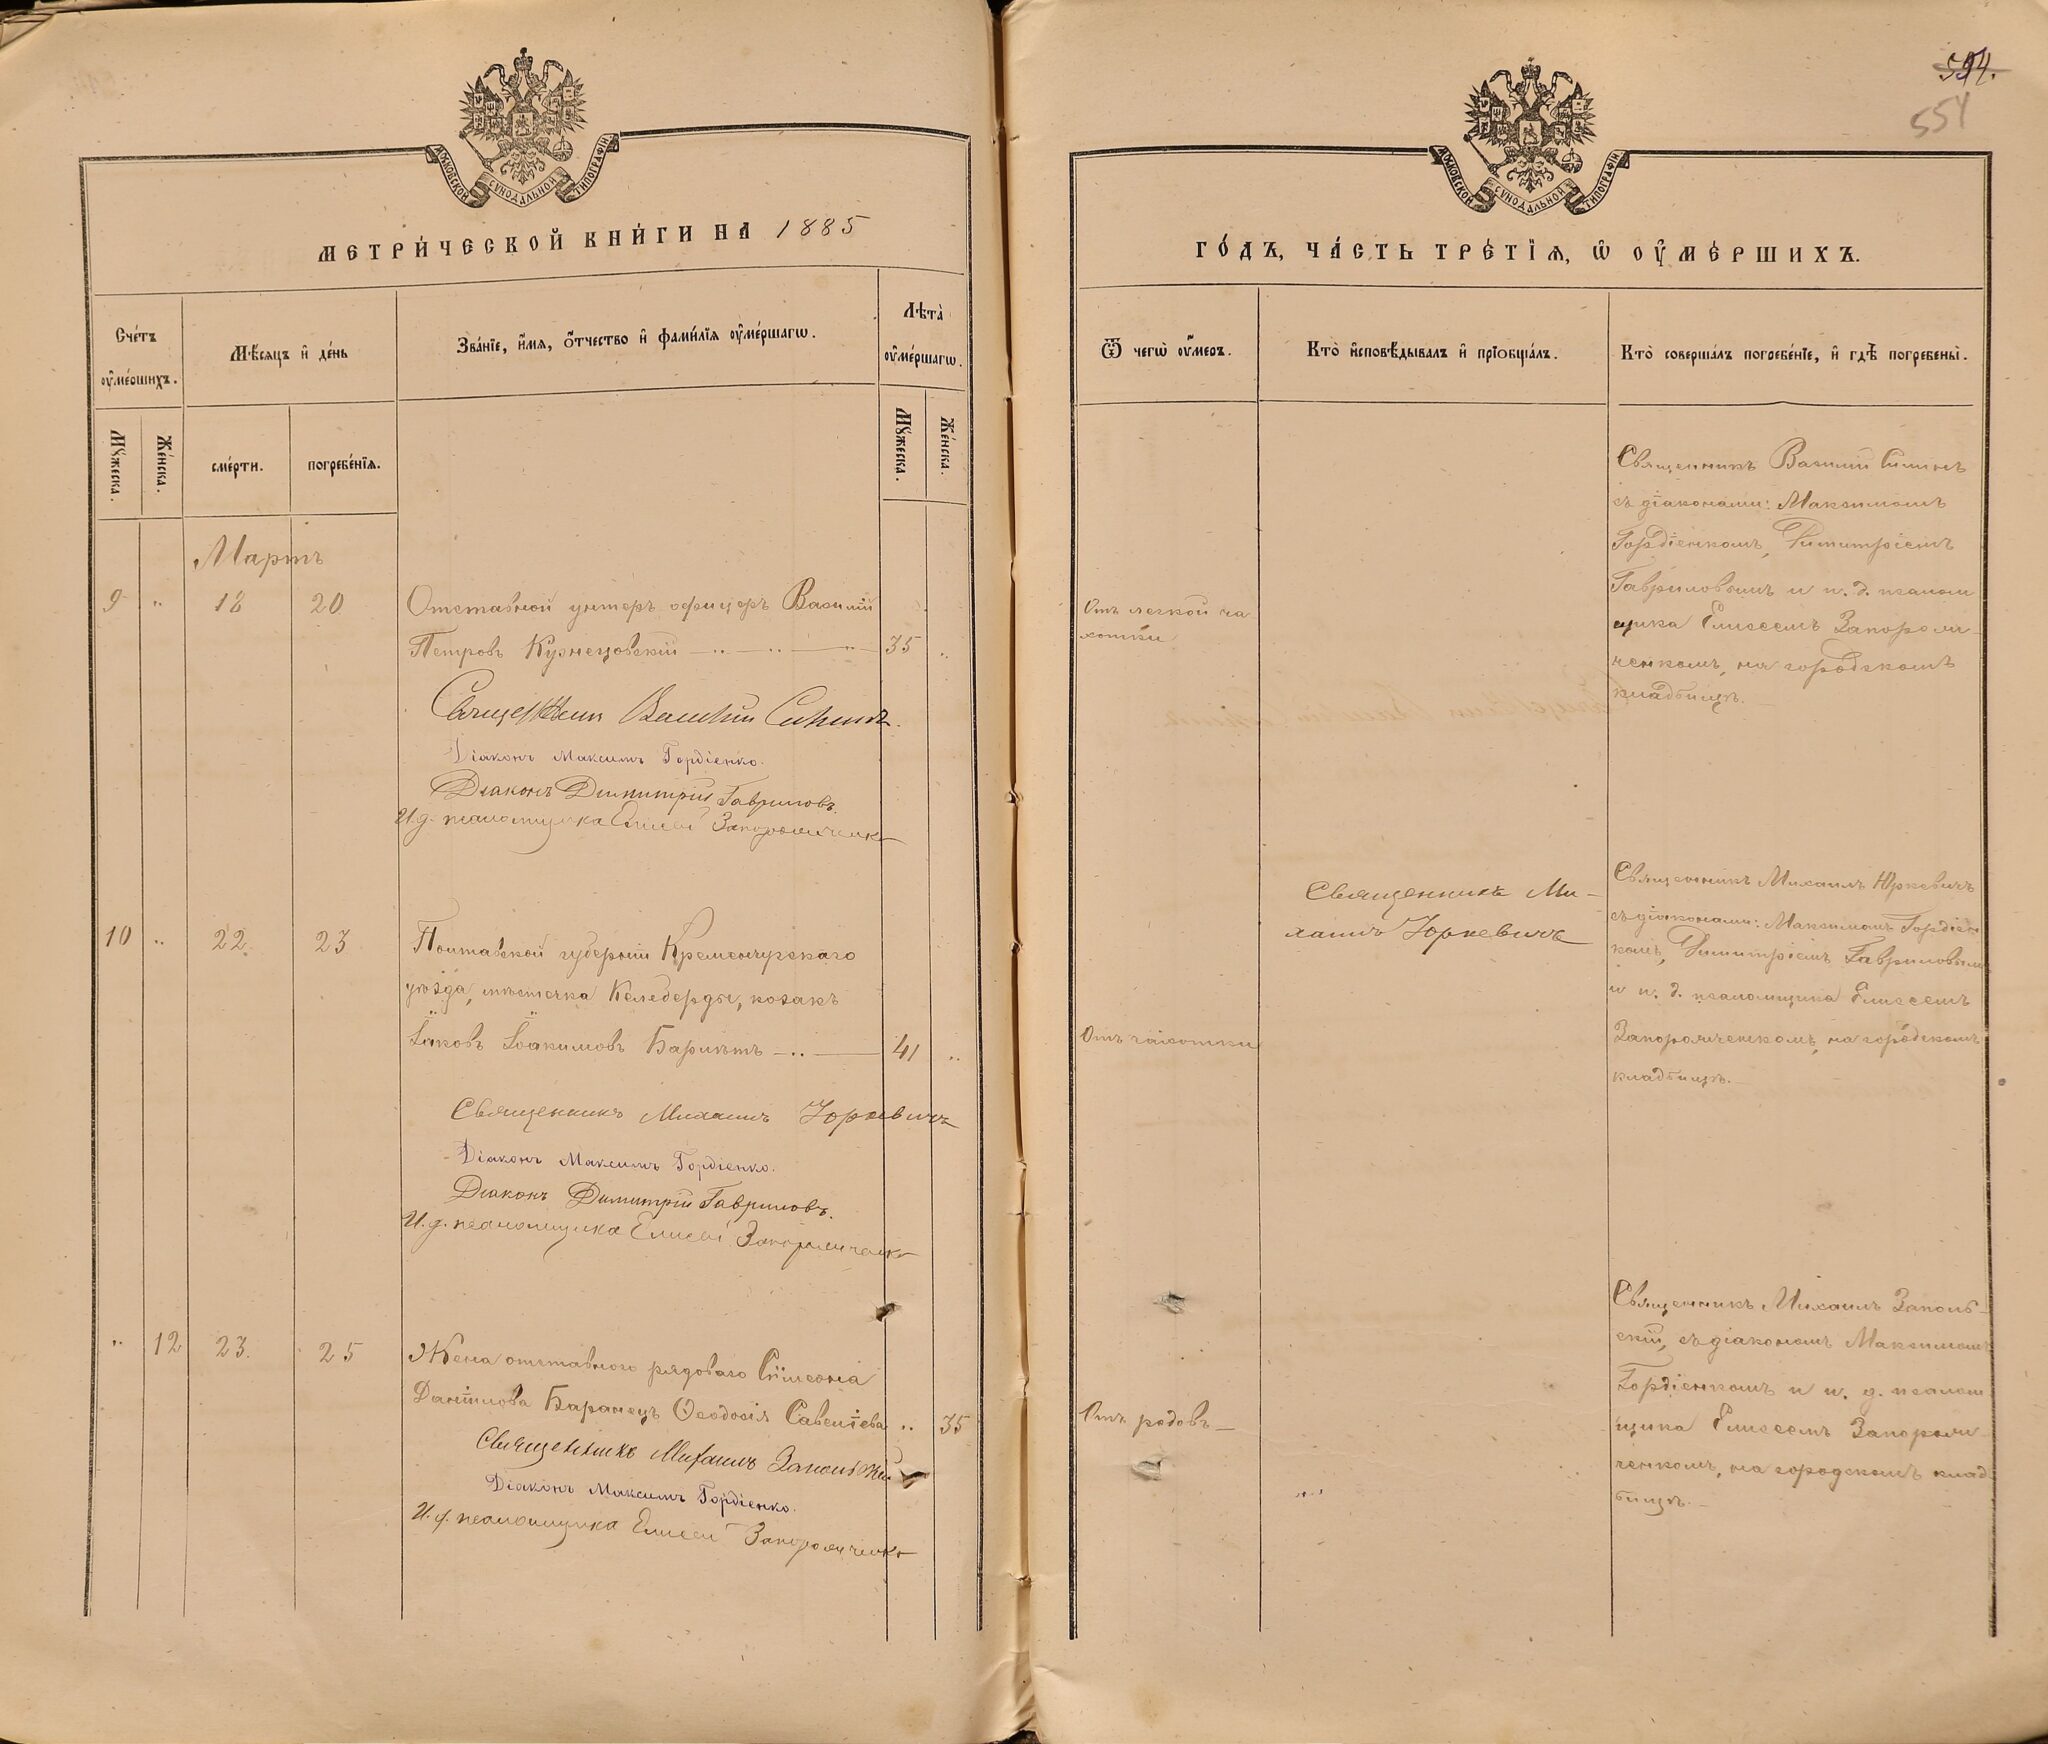 МОСКОВСКОЙ СѴНОДАЛЬНОЙ ТИПОГРАФІИ
МЕТРИ́ЧЕСКОЙ КНИ́ГИ НА 1885
Сче́тъ ᲂу҆ме́ршихъ.
Мѣ́сѧцъ и҆ де́нь
Зва́нїе, и҆́мѧ, ѻ҆́тчество и҆ фами́лїѧ ᲂу҆ме́ршагѡ.
Лѣ́та ᲂу҆ме́ршагѡ.
Мꙋ́жеска.
Же́нска.
сме́рти.
погребе́нїѧ.
Мꙋ́жеска.
Же́нска.
Мартъ
9 „ 18 20 Отставной унтеръ офицеръ Василій
Петровъ Кузнецовскій 35 „
Священникъ Василій
Діаконъ Максимъ Гордіенко.
Діаконъ Димитрій Гавриловъ.
И. д. псаломщика Елисей
10 „ 22 23 Полтавской губерніи Кременчугскаго
уѣзда, мѣстечка Келеберды, козакъ
Іаковъ Іоакимовъ 41 „
Священникъ Михаилъ Юркевичъ
Діаконъ Максимъ Гордіенко.
Діаконъ Димитрій Гавриловъ.
И. д. псаломщика Елисей
„ 12 23. 25 Жена отставного рядоваго Сѵмеона
Даніилова Баранецъ Ѳеодосія Савеліева „ 35
Священникъ Михаилъ Запольскій
Діаконъ Максимъ Гордіенко.
И. д. псаломщика Елисей
594.
554
МОСКОВСКОЙ СѴНОДАЛЬНОЙ ТИПОГРАФІИ
ГО́ДЪ, ЧА́СТЬ ТРЕ́ТЇѦ, Ѡ҆ ОУ҆МЕ́РШИХЪ.
Ѿ чегѡ̀ ᲂу҆́меръ.
Кто̀ и҆сповѣ́дывалъ и҆ прїѡбща́лъ.
Кто̀ соверша́лъ погребе́нїе, и҆ гдѣ̀ погребены̀.
Священникъ Василій
съ діаконами: Максимомъ
Гордіенкомъ, Димитріемъ
Гавриловымъ и и. д. псалом
щика Елисеемъ
ченкомъ, на городскомъ
кладбищѣ.
Отъ легкой ча
хотки
Священникъ Ми-
хаилъ Юркевичъ
Священникъ Михаилъ Юркевичъ
съ діаконами: Максимомъ Гордіен
комъ, Димитріемъ Гавриловымъ
и и. д. псаломщика Елисеемъ
на городскомъ
кладбищѣ.
Отъ чахотки
Священникъ Михаилъ Заполь-
скій, съ діакономъ Максимомъ
Гордіенкомъ и и. д. псалом
щика Елисеемъ
ченкомъ, на городскомъ клад
бищѣ.
Отъ родовъ